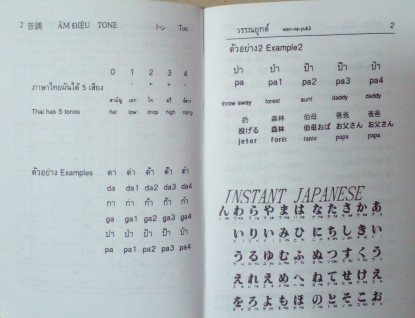 2 音調 ÂM ĐIỆU TONE トーン Ton
0 1 2 3 4
ภาษาไทยผันได้ 5 เสียง
สามัญ เอก โท ตรี จัตวา
Thai has 5 tones flat low drop high rising
ตัวอย่าง Examples ตา ต่า ต้า ต๊า ต๋า
da da1 da2 da3 da4
กา ก่า ก้า ก๊า ก๋า
ga ga1 ga2 ga3 ga4
ปา ป่า ป้า ป๊า ป๋า
pa pa1 pa2 pa3 pa4
วรรณยุกต์ wan-na-yuk3 2
ตัวอย่าง2 Example2
ปา ป่า ป้า ป๊า ป๋า
pa pa1 pa2 pa3 pa4
throw away forest aunt daddy daddy
扔 森林 伯母 爸爸 爸爸
投げる 森林 伯母おば お父さん お父さん
jeter forêt tante papa papa
INSTANT JAPANESE
んわらやまはなたさかあ
いりいみひにちしきい
うるゆむふぬつすくう
えれえめへねてせけえ
をろよもほのとそこお